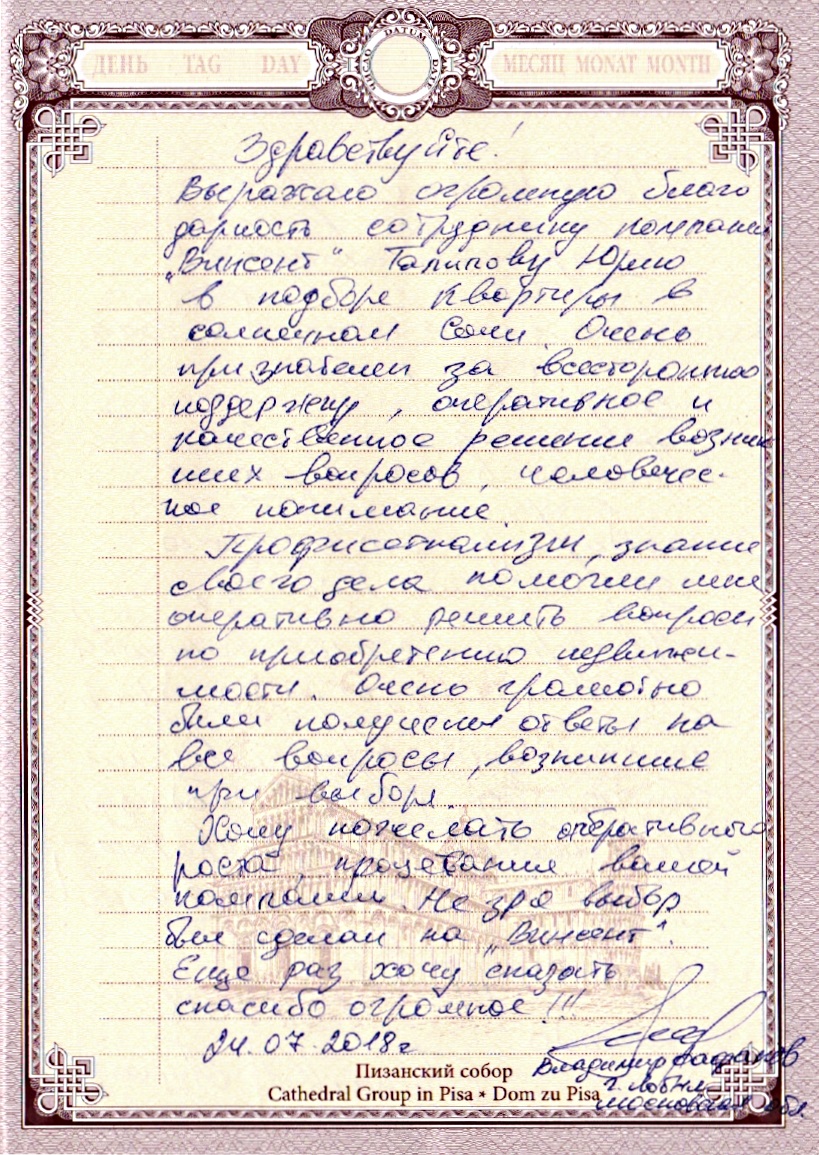 ДЕНЬ TAG DAY
DATUM
DATE
МЕСЯЦ MONAT MONTH
Здравствуйте!
Выражаю огромную благо
дарность сотруднику компании
"Винсент" Талипову Юрию
в подборе квартиры в
солнечном Сочи. Очень
признателен за всестороннюю
поддержку, оперативное и
качественное решение возник
ших вопросов, человечес-
кое понимание.
Профисеонализм, знание
своего дела помогли мне
оперативно решить вопросы
по приобретению недвижи-
мости. Очень грамотно
были получены ответы на
все вопросы, возникшие
при выборе.
Хочу пожелать оперативного
роста, процветания вашей
компании. Не зря выбор
был сделан на "Винсент".
Еще раз хочу сказать
спасибо огромное!!!
24.07.2018г
Владимир
г. Лобня
Московская обл.
Пизанский собор
Cathedral Group in Pisa * Dom zu Pisa